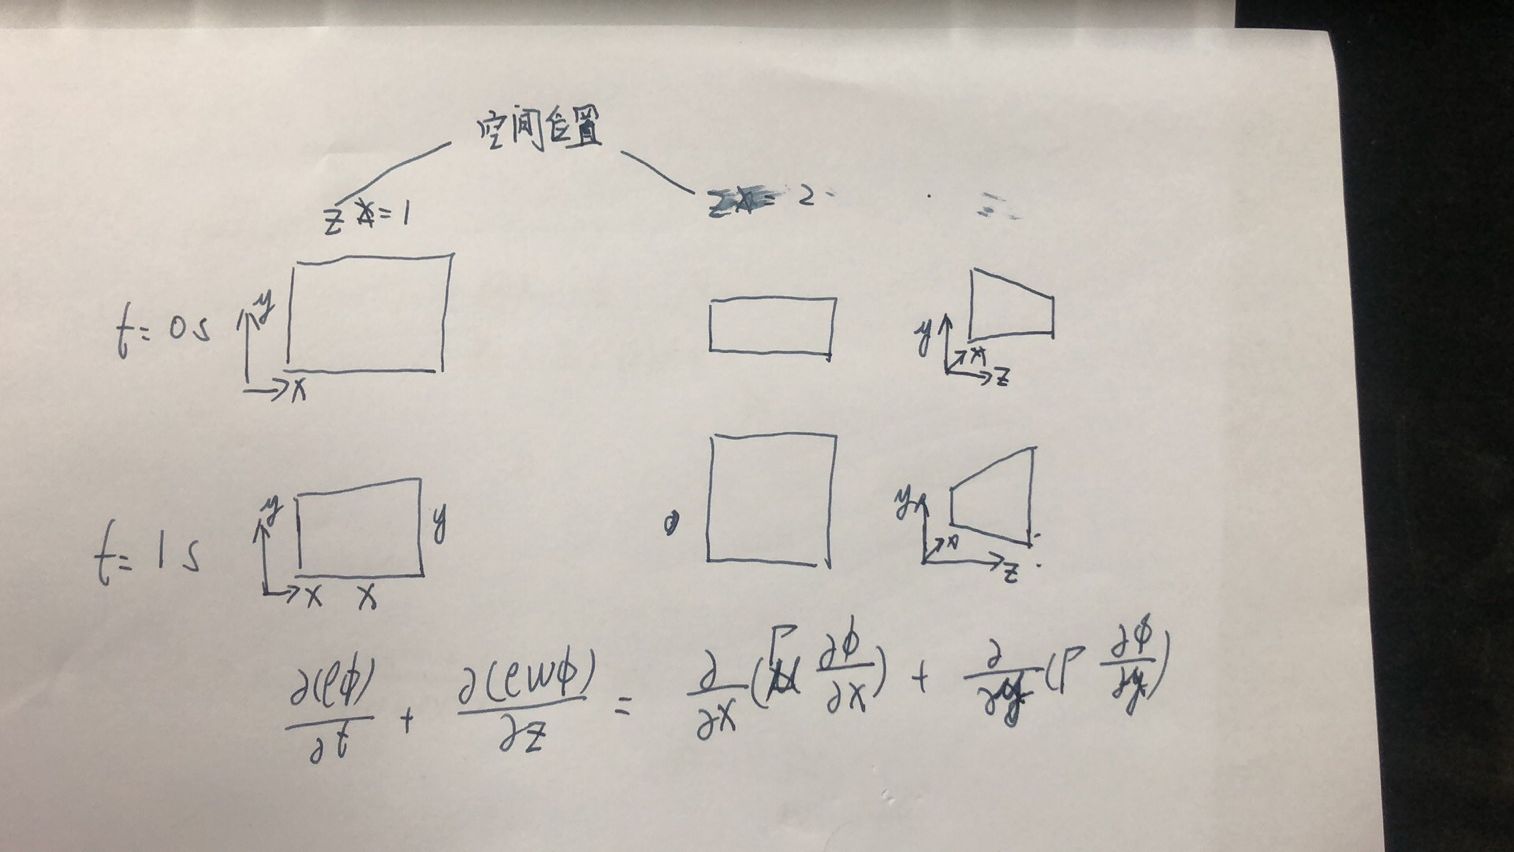 空间位置
z = 1
z = 2
t = 0 s
y
x
y
x
z
t = 1 s
y
x
x
y
y
x
z
∂(ρϕ)/∂t + ∂(ρwϕ)/∂z = ∂/∂x (Γ ∂ϕ/∂x) + ∂/∂y (Γ ∂ϕ/∂y)